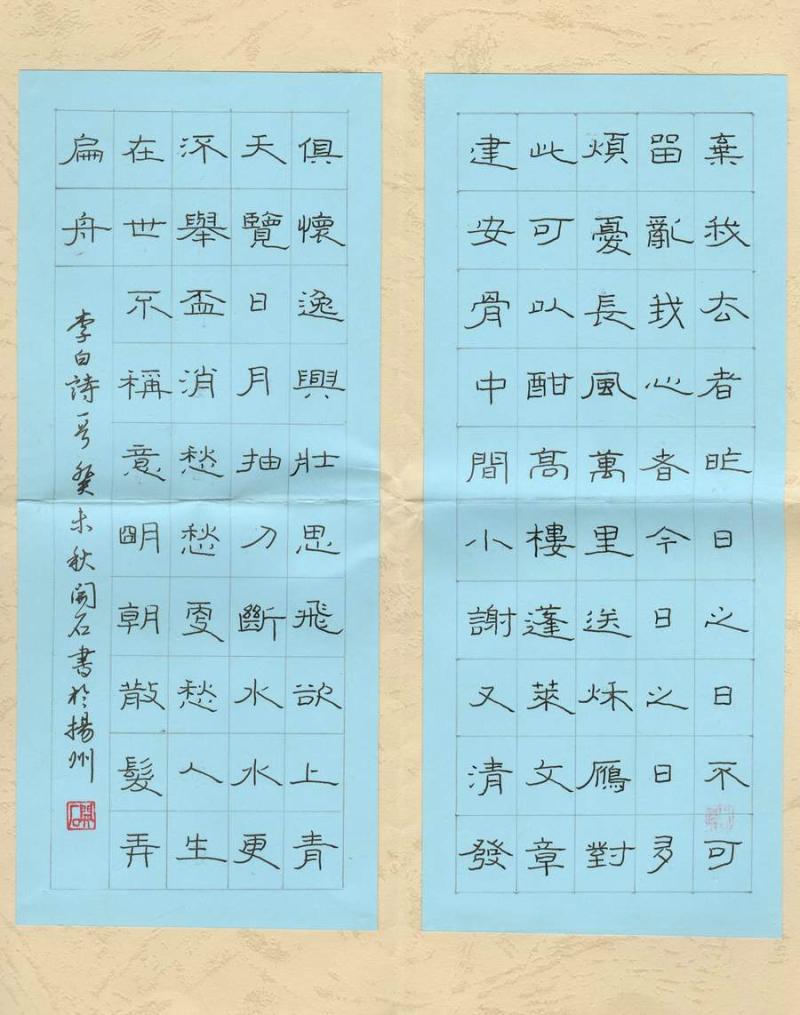 棄我去者昨日之日不可
留亂我心者今日之日多
煩憂長風萬里送秋鴈對
此可以酣高樓蓬萊文章
建安骨中間小謝又清發
俱懷逸興壯思飛欲上青
天覽日月抽刀斷水水更
流舉盃消愁愁更愁人生
在世不稱意朙朝散髮弄
扁舟
李白詩一首癸未秋開石書於揚州
開石